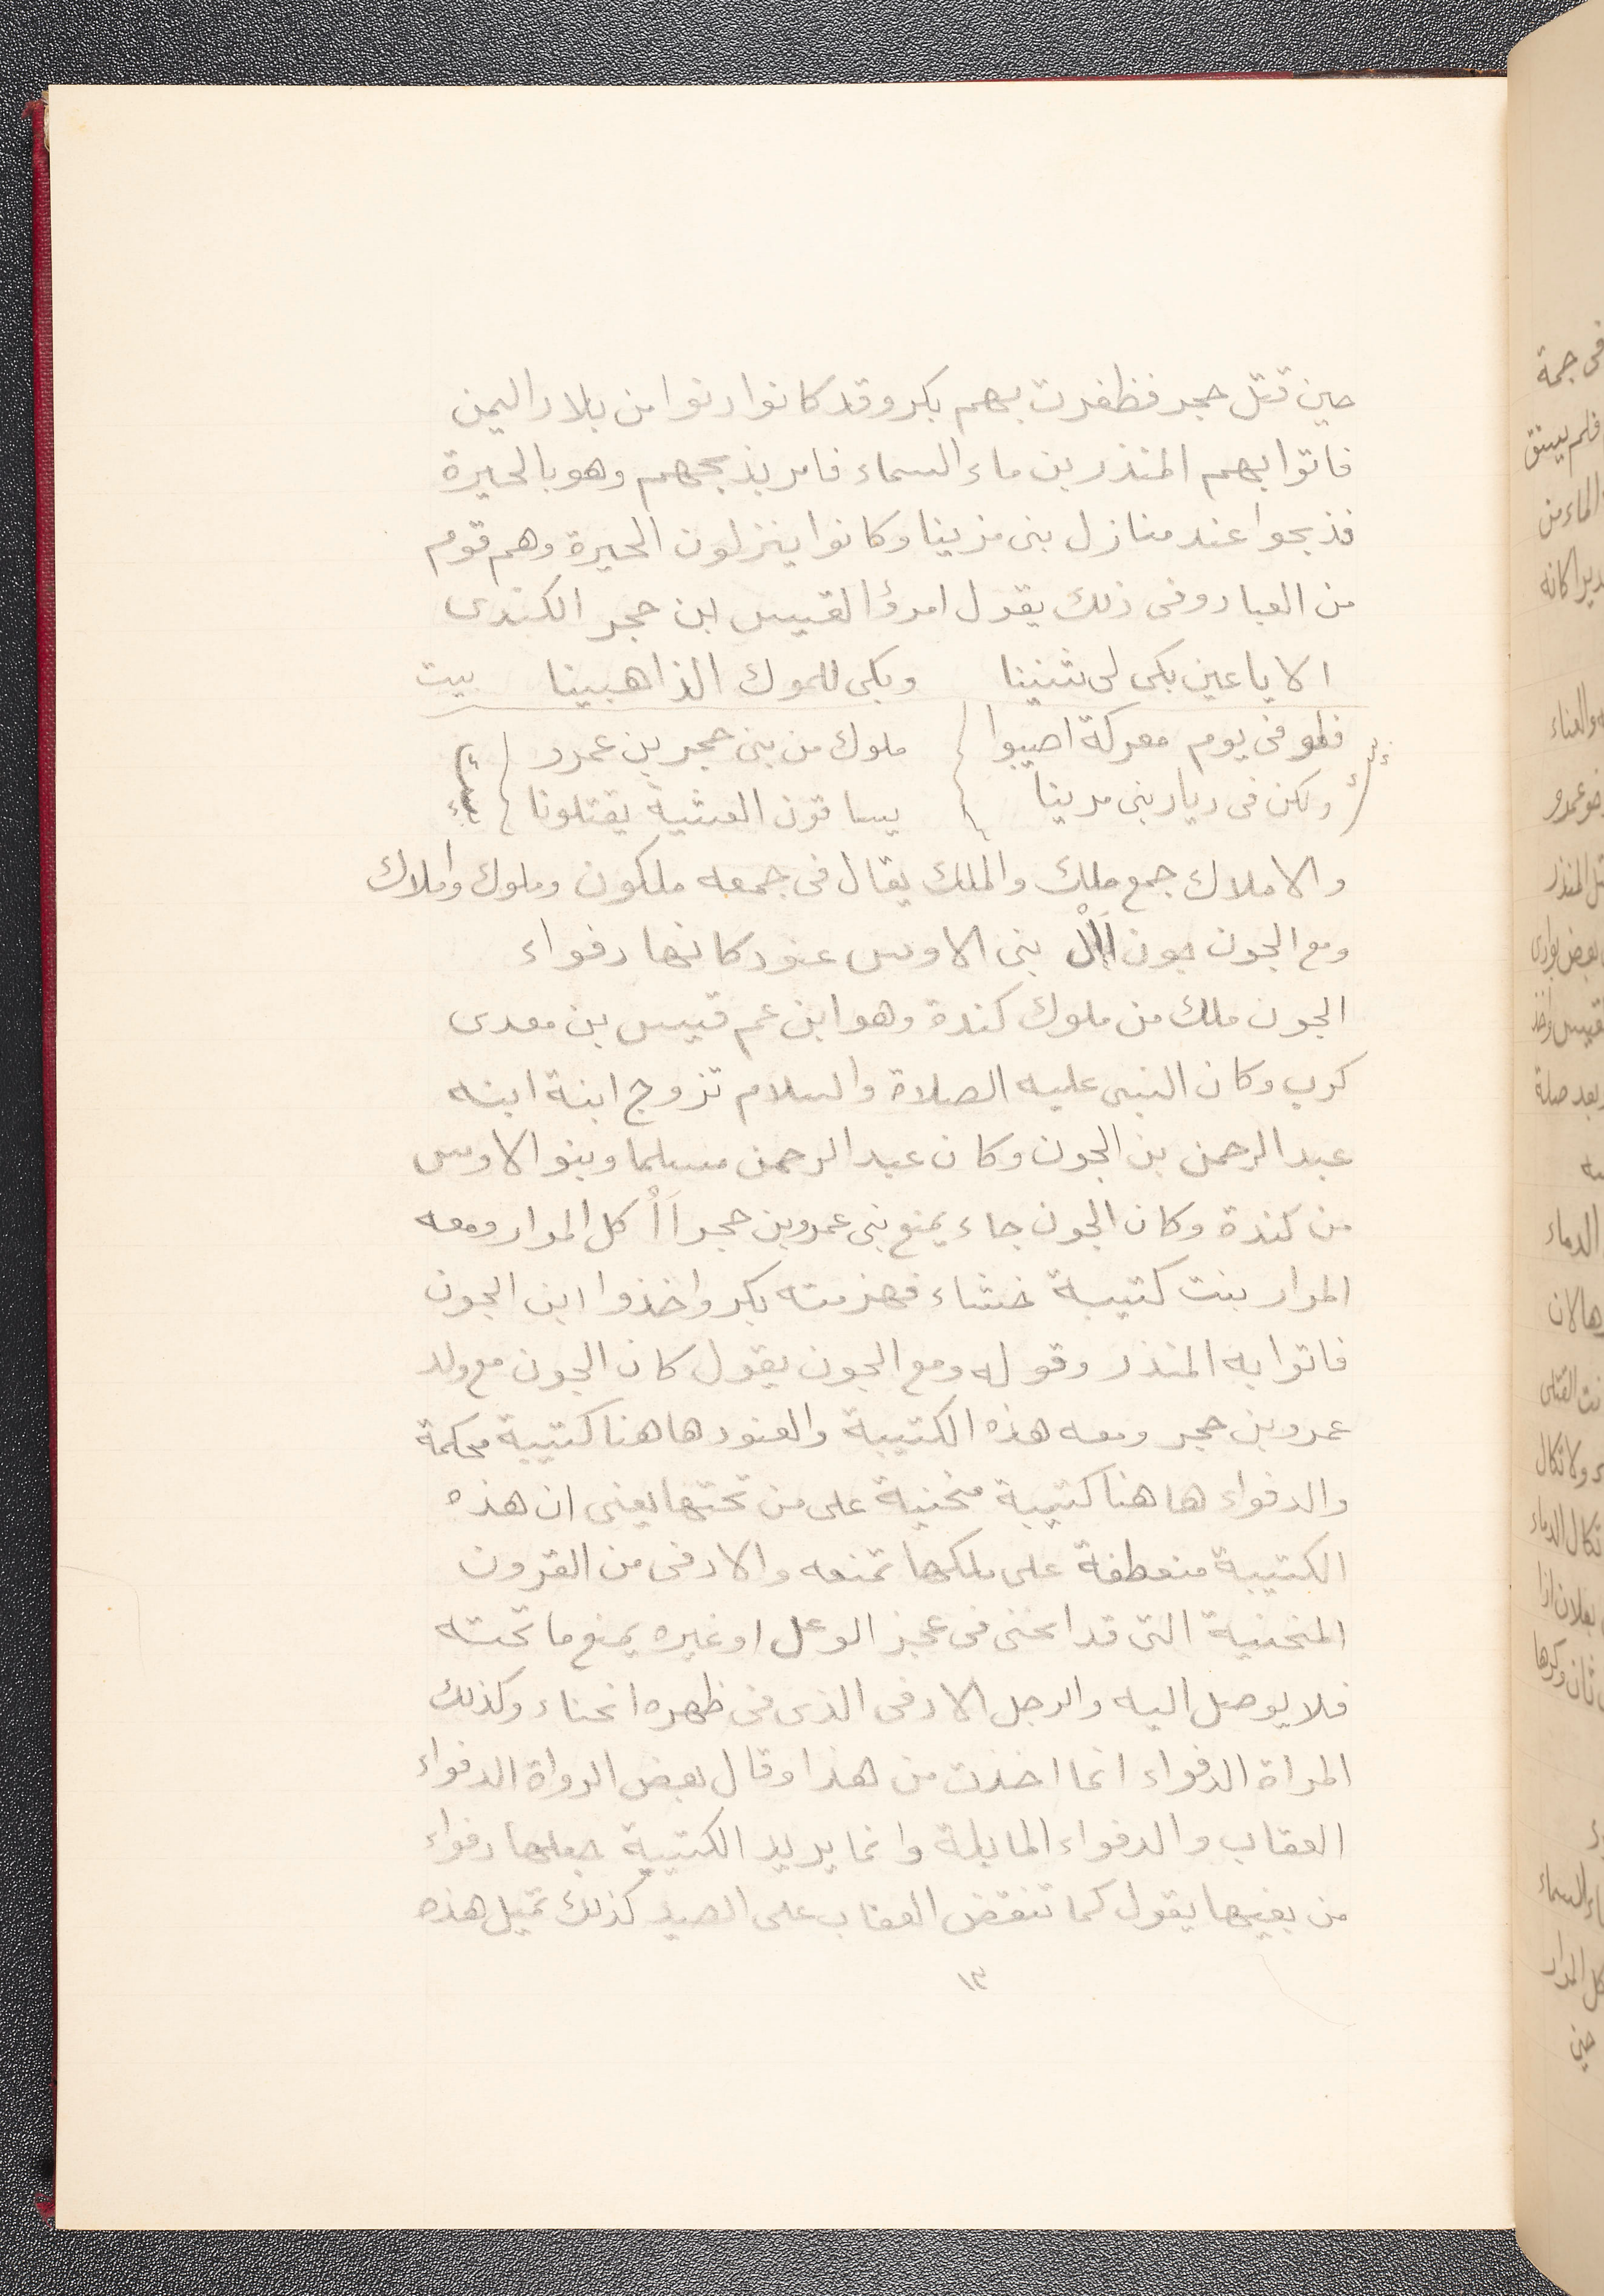 حين قتل حجر فظفرت بهم بكر وقد كانوا دنوا من بلاد اليمن
فاتوا بهم المنذر بن ماء السماء فامر بذبحهم وهو بالحيرة
فذبحوا عند منازل بنى مرينا وكانوا ينزلون الحيرة وهم قوم
من العباد وفى ذلك يقول امرؤ القيس ابن حجر الكندى
الا يا عين بكى لى شنينا وبكى للموك الذاهبينا بيت
فلو فى يوم معركة اصيبوا ملوك من بنى حجر بن عمرو
ولكن فى ديار بنى مرينا يساقون العشية يقتلونا
والاملاك جمع ملك والملك يقال فى جمعه ملكون وملوك واملاك
ومع الجون جون اَاْل بنى الاوس عنود كانها دفواء
الجون ملك من ملوك كندة وهو ابن عم قيس بن معدى
كرب وكان النبى عليه الصلاة والسلام تزوج ابنة ابنه
عبد الرحمن بن الجون وكان عبد الرحمن مسلما وبنو الاوس
من كندة وكان الجون جاء يمنع بنى عمرو بن حجر اَاْكل المرار ومعه
المرار بنت كتيبة خشناء فهزمته بكر واخذوا ابن الجون
فاتوا به المنذر وقوله ومع الجون يقول كان الجون مع ولد
عمرو بن حجر ومعه هذه الكتيبة والعنود هاهنا كتيبة محكمة
والدفواء هاهنا كتيبة منحنية على من تحتها يعنى ان هذه
الكتيبة منعطفة على ملكها تمنعه والادفى من القرون
المنحنية التى قد انحنى فى عجز الوعل او غيره يمنع ما تحته
فلا يوصل اليه والرجل الادفى الذى فى ظهره انحناء وكذلك
المراة الدفواء انما اخذت من هذا وقال بعض الرواة الدفواء
العقاب والدفواء المايلة وانما يريد الكتيبة جعلها دفواء
من بغيها يقول كما تنقض العقاب على الصيد كذلك تميل هذه
١٣